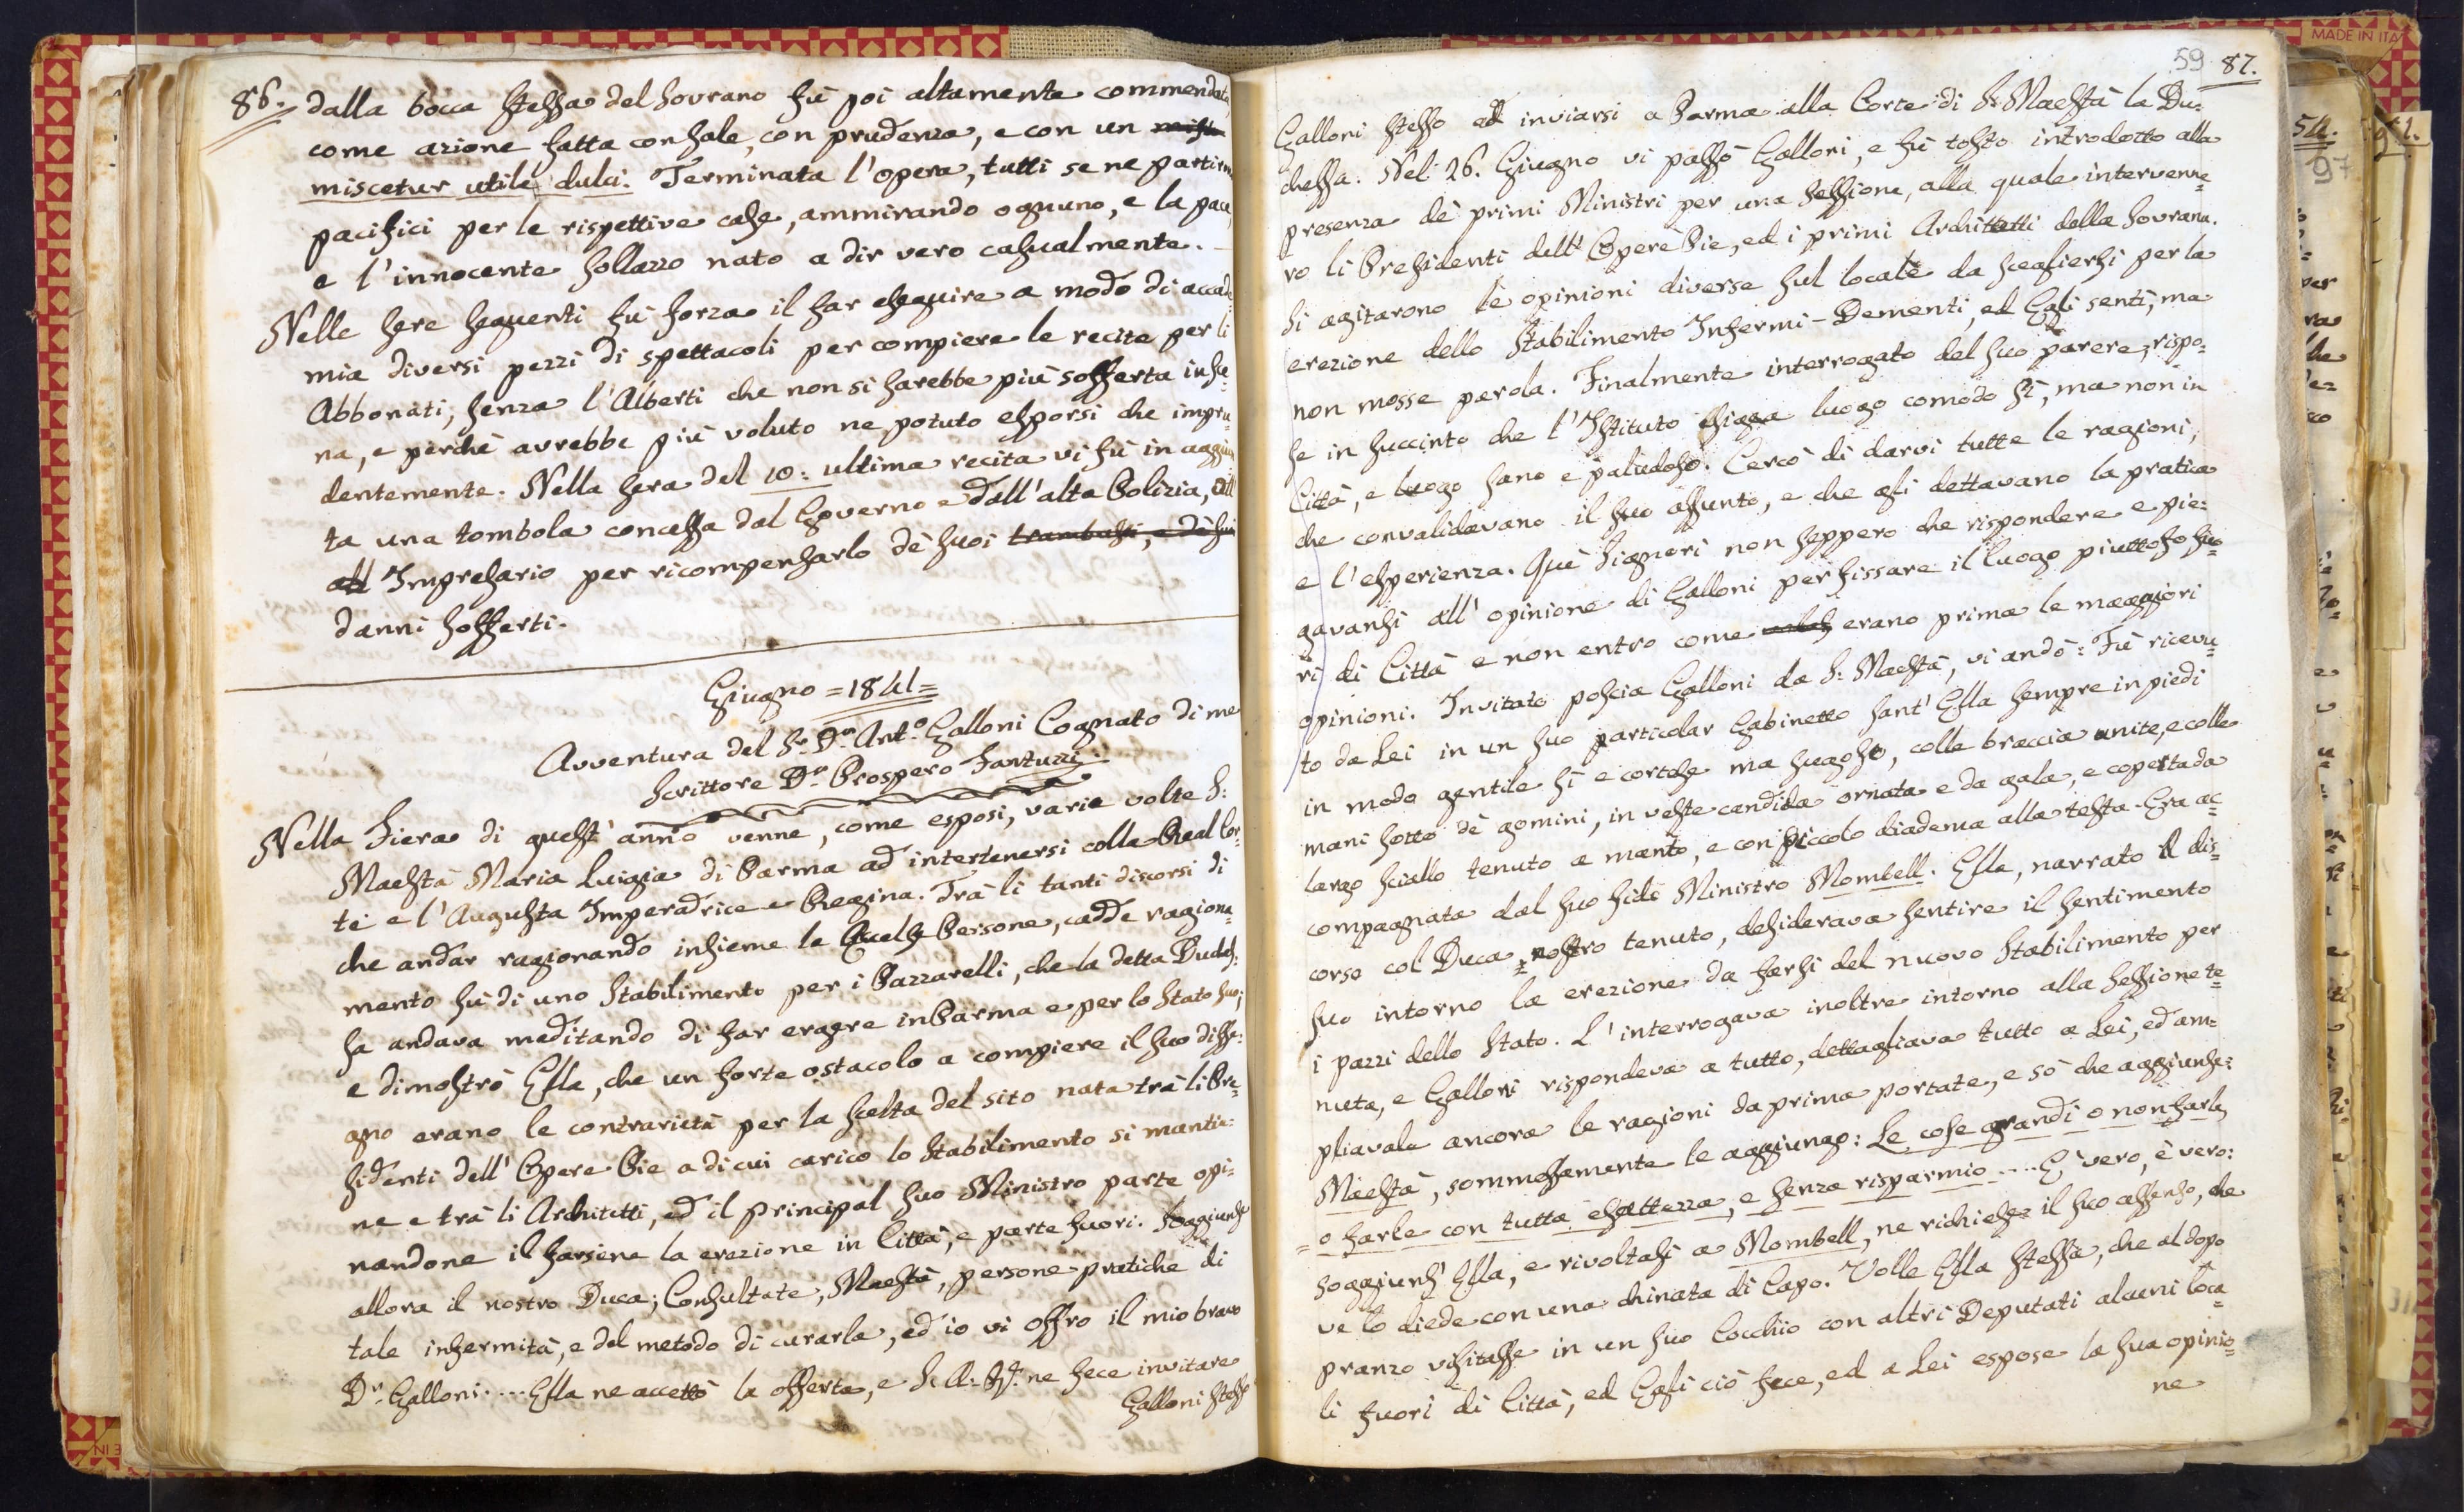 86. dalla bocca stessa del Sovrano fù poi altamente commendata,
come azione fatta con sale, con prudenza, e con un
miscetur utile dulci. Terminata l'opera, tutti se ne partiron
pacifici per le rispettive case, ammirando ognuno, e la pace,
e l'innocente sollazzo nato a dir vero casualmente.
Nelle sere seguenti fù forza il far eseguire a modo di accade=
mia diversi pezzi di spettacoli per compiere le recite per li
Abbonati, senza l'Alberti che non si sarebbe più sofferta in Sce=
na, e perchè avrebbe più voluto ne potuto esporsi che impru=
dentemente. Nella sera del 10: ultima recita vi fù in aggiun
ta una tombola concessa dal Governo e dall'alta Polizia,
all Impresario per ricompensarlo dè suoi trambusti, e dè suoi
danni sofferti.
Giugno =1841=
Avventura del Sr. Dr. Ant.o Galloni Cognato di me
Scrittore Dr. Prospero Fantuzzi.
Nella Fiera di quest'anno venne, come esposi, varie volte S:
Maestà Maria Luigia di Parma ad intertenersi colla Real Cor=
te e l'Augusta Imperadrice e Regina. Trà li tanti discorsi di
che andar ragionando insieme le Auguste Persone, cadde ragiona=
mento sù di uno Stabilimento per i Pazzarelli, che la detta Duches:
sa andava meditando di far eragre in Parma e per lo Stato suo;
e dimostrò Essa, che un forte ostacolo a compiere il suo disse:
gno erano le contrarietà per la scelta del sito nata trà li Pre=
sidenti dell'Opere Pie a di cui carico lo Stabilimento si mantie:
ne e trà li Architetti, ed il principal suo Ministro parte opi=
nandone il farsene la erezione in Città, e parte fuori. Soggiunse
allora il nostro Duca; Consultate, Maestà, persone pratiche di
tale infermità, e del metodo di curarla, ed io vi offro il mio bravo
Dr. Galloni.... Essa ne accettò la offerta, e S. A. R. ne fece invitare
Galloni stesso
59 87.
Galloni stesso ed inviarsi a Parma alla Corte di S. Maestà la Du=
chessa. Nel 26. Giugno vi passò Galloni, e fù tosto introdotto alla
presenza dè primi Ministri per una sessione, alla quale intervenne=
ro li Presidenti dell'Opere Pie, ed i primi Architetti della Sovrana.
Si agitarono le opinioni diverse sul locale da scegliersi per la
erezione dello Stabilimento Infermi-Dementi, ed Egli sentì, ma
non mosse parola. Finalmente interrogato del suo parere, rispo=
se in succinto che l'Istituto esigga luogo comodo sì, ma non in
Città, e luogo sano e paludoso. Cercò di darvi tutte le ragioni,
che convalidavano il suo assunto, e che gli dettavano la pratica
e l'esperienza. Què Signori non seppero che rispondere e pie:
gavansi all'opinione di Galloni per fissare il luogo piuttosto fuo=
ri di Città e non entro come erano prima le maggiori
opinioni. Invitato poscia Galloni da S: Maestà, vi andò: Fù ricevu=
to da Lei in un suo particolar Gabinetto sant'Essa sempre in piedi
in modo gentile sì e cortese ma sugoso, colle braccia unite, e colle
mani sotto dè gomini, in veste candida ornata e da gala, e coperta da
largo sciallo tenuto a manto, e con piccolo diadema alla testa. Era ac=
compagnata dal suo fido Ministro Mombell. Essa, narrato il dis=
corso col Duca nostro tenuto, desiderava sentire il sentimento
suo intorno la erezione da farsi del nuovo Stabilimento per
i pazzi dello Stato. L'interrogava inoltre intorno alla sessione te=
nuta, e Galloni rispondeva a tutto, dettagliava tutto a Lei, ed am=
pliavala ancora le ragioni da prima portate, e sò che aggiunse:
Maestà, sommessamente le aggiungo: Le cose grandi o non farle,
= o farle con tutta esattezza, e senza risparmio .... E' vero, è vero:
soggiuns'Essa, e rivoltasi a Mombell, ne richiese il suo assenso, che
ve lo diede con una chinata di Capo. Volle Essa stessa, che al dopo
pranzo visitasse in un suo Cocchio con altri Deputati alcuni loca=
li fuori di Città, ed Egli ciò fece, ed a Lei espose la sua opinio=
ne
MADE IN ITA